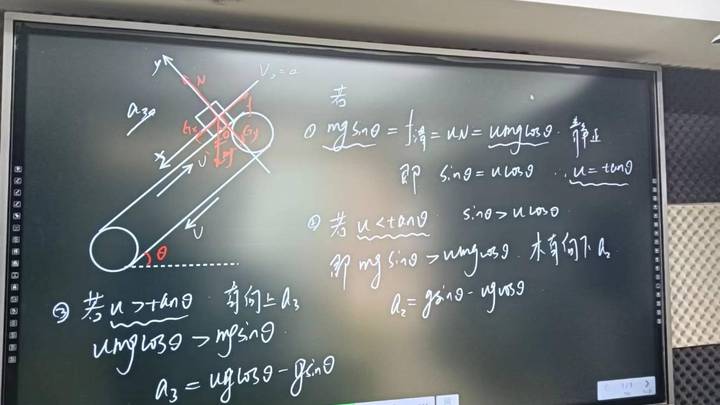 y
N
V₀=0
a₃₀
Gx
Gy
mg
x
υ
υ
θ
若
① mgsinθ = f滑 = uN = umgcosθ. 静止
即 sinθ = ucosθ ∴ u = tanθ
② 若 u<tanθ sinθ > ucosθ
即 mgsinθ > umgcosθ. 木有向下a₂
a₂ = gsinθ - ugcosθ
③ 若 u>tanθ 有向上a₃
umgcosθ > mgsinθ.
a₃ = ugcosθ - gsinθ